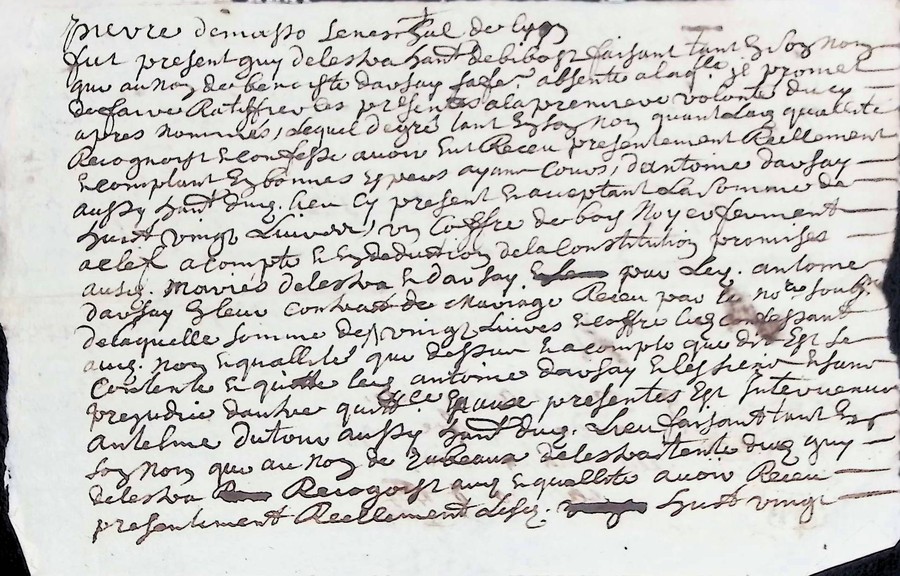 pierre demasso seneschal de Lyon
fut present guy delestra hant de bibost faisant tant en son nom
que au nom de benoiste darsay sa fe absente a laqlle il promet
de faire Ratiffier ces presentes a la premiere volonté du cy
apres nommes, Lequel de gré tant en son nom quant lad quallité
Recognoist et confesse avoir eut Receu presentement Reellement
et comptant en bonnes esperes ayant Cours, d'antoine darsay
aussy hant dud. lieu cy present et acceptant La somme de
huict vingt Livres, un Coffre de boys Noyer fermant
a clef acompte et en deduction de la Constitution promises
ausd. mariés delestra et darsay par Led. antoine
darsay en leur contract de Mariage Receu par le nore soubzne
de laquelle somme de vingt Livres et coffre led confessant
aud. nom et quallité que dessus et acompte que dit Est se
Contente et quitte led antoine darsay et les siens et sans
prejudice d'autre quitt. Esquelles presentes Est Intervenue
antelme dutour aussy hant dud. Lieu faisant tant en
son Nom que au Nom de delestra tente dud guy
delestra Recognoist aud et quallité avoir Receu
presentement Reellement Lesd. huict vingt